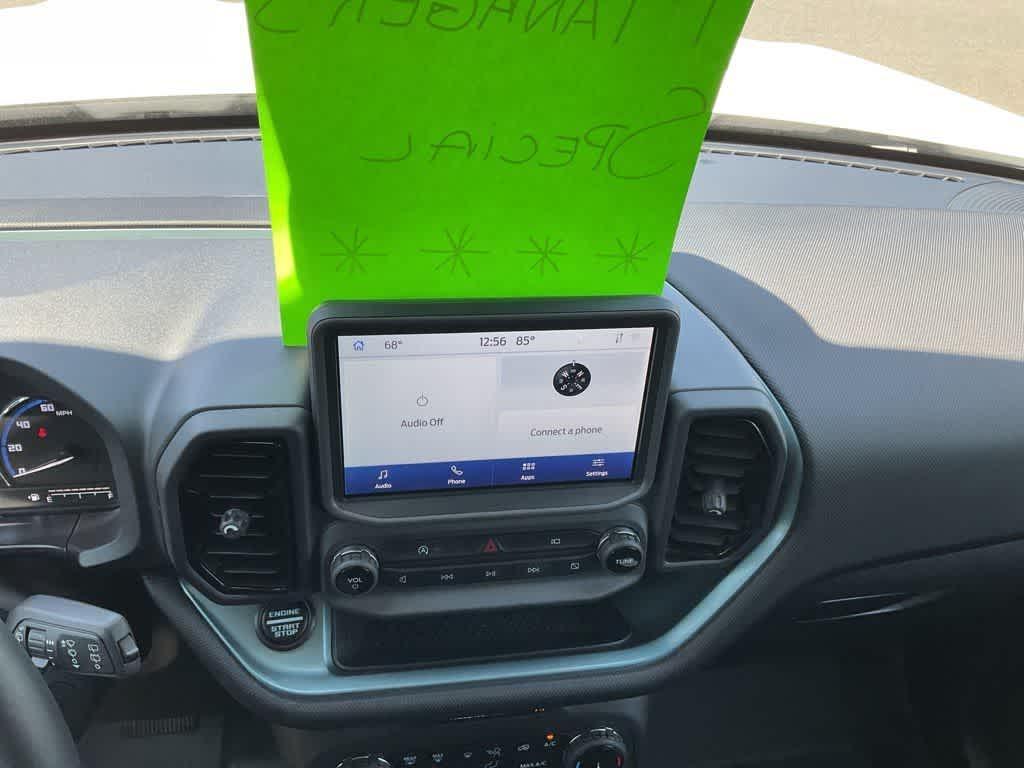 MANAGER'S
SPECIAL
* * * *
68° 12:56 85°
Audio Off
Connect a phone
Audio Phone Apps Settings
60 MPH
40
20
0
E F
VOL
TUNE
ENGINE
START
STOP
A/C
MAX A/C